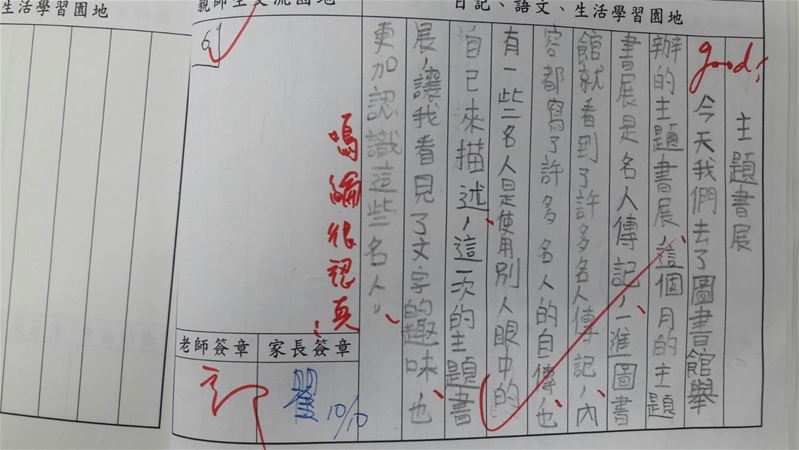 日記、語文、生活學習園地
good!
主題書展
今天我們去了圖書館舉
辦的主題書展，這個月的主題
書展是名人傳記，一進圖書
館就看到了許多名人傳記，內
容都寫了許多名人的自傳，也
有一些名人是使用別人眼中的
自己來描述，這一次的主題書
展，讓我看見了文字的趣味，也
更加認識這些名人。
親師生交流園地
很認真
老師簽章
家長簽章
10/10
生活學習園地